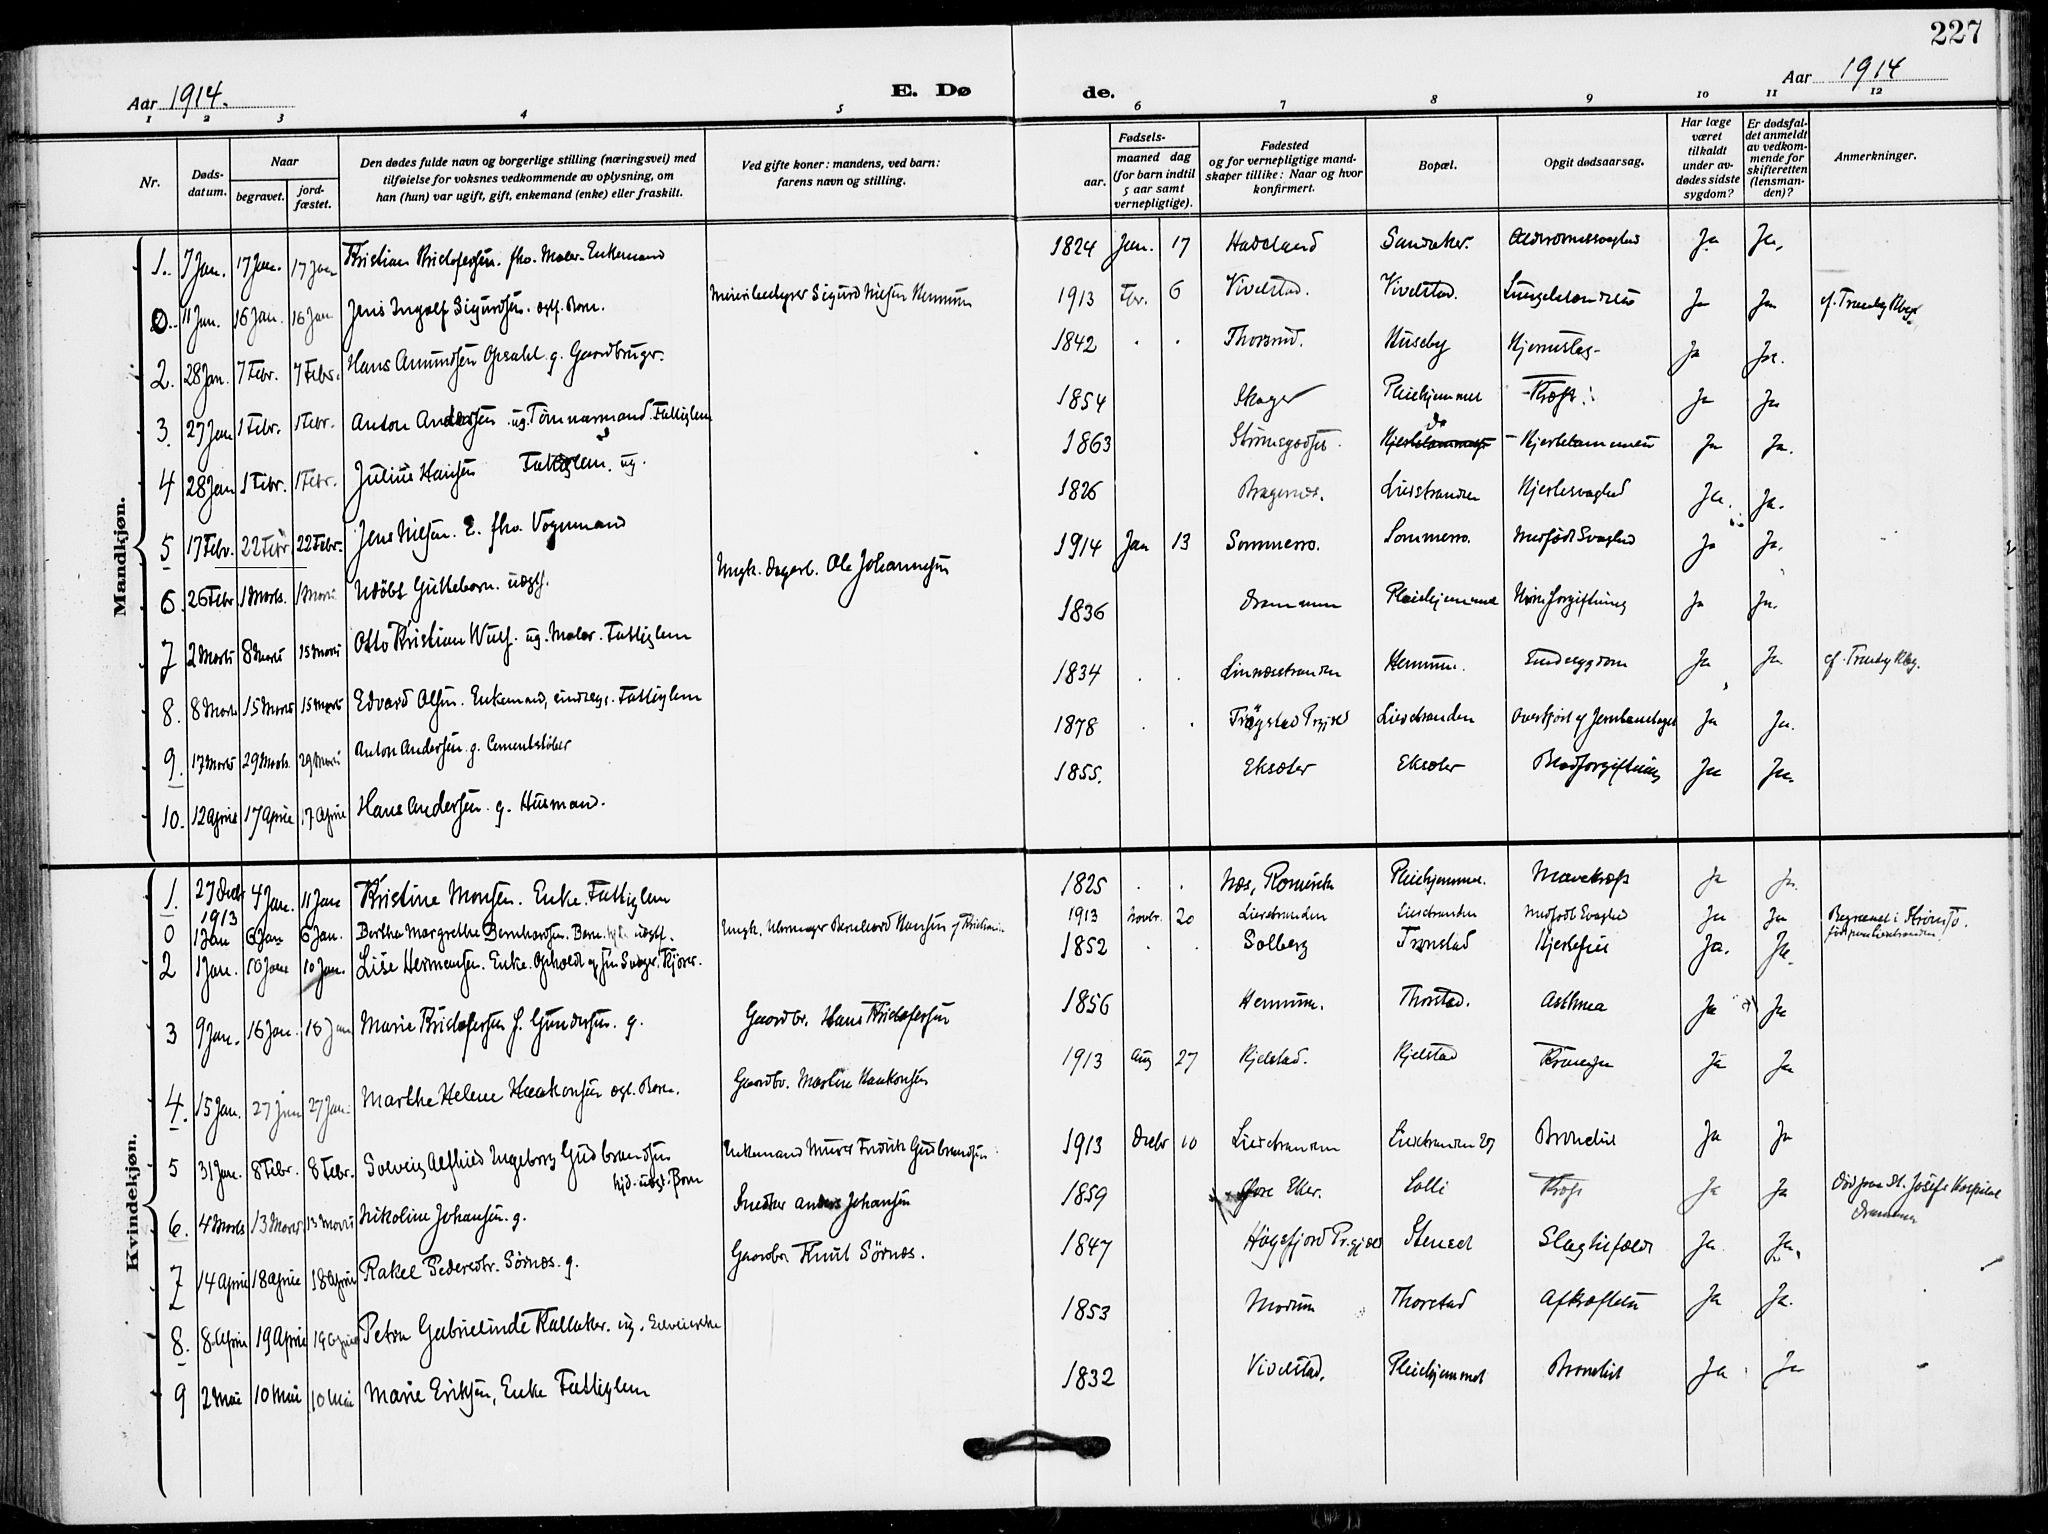 227
Aar 1914.
E. Dø
de.
Aar 1914
1 2 3 4 5 6 7 8 9 10 11 12
Nr.
Døds-
datum.
Naar
begravet.
jord-
fæstet.
Den dødes fulde navn og borgerlige stilling (næringsvei) med
tilføielse for voksnes vedkommende av oplysning, om
han (hun) var ugift, gift, enkemand (enke) eller fraskilt.
Ved gifte koner: mandens, ved barn:
farens navn og stilling.
Fødsels-
aar.
maaned dag
(for barn indtil
5 aar samt
vernepligtige).
Fødested
og for vernepligtige mand-
skaper tillike: Naar og hvor
konfirmert.
Bopæl.
Opgit dødsaarsag.
Har læge
været
tilkaldt
under av-
dødes sidste
sygdom?
Er dødsfal-
det anmeldt
av vedkom-
mende for
skifteretten
(lensman-
den)?
Anmerkninger.
Mandkjøn.
1. 7 Jan. 17 Jan. 17 Jan Kristian Kristofersen. fhv. Maler. Enkemand 1824 Jan. 17 Hadeland Sandaker. Alderdomssvaghed Ja Ja.
0. 11 Jan. 16 Jan. 16 Jan Jens Ingolf Sigurdsen. egtf. Barn. Meieribestyrer Sigurd Nielsen Hennum 1913 Fbr. 6 Vivelstad. Vivelstad. Ja Ja cf. Tranby Kbog
2. 28 Jan. 7 Febr. 7 Febr. Hans Amundsen Opsahl g. Gaardbruger. 1842 . . Thorsrud. Huseby Hjerneslag Ja Ja.
3. 27 Jan 1 Febr. 1 Febr. Anton Andersen ug. Tømmermand. Fattiglem 1854 Skoger Pleiehjemmet Kræft. Ja Ja
4 28 Jan 1 Febr. 1 Febr. Julius Hansen Fattiglem. ug. 1863 Strømsgodset. do Hjertelammelse Ja Ja.
5 17 Febr. 22 Febr 22 Febr. Jens Nielsen. E. fhv. Vognmand 1826 Bragernes. Lierstranden Hjertesvaghed Ja. Ja.
6. 26 Febr 1 Marts. 1 Marts Udøbt Guttebarn. uægtf. Ungk. Dagarb. Ole Johannesen 1914 Jan 13 Sommerro. Sommerro. Medfødt Svaghed Ja Ja.
7 2 Marts 8 Marts 15 Marts Otto Kristian Wulf. ug. Maler. Fattiglem 1836 Drammen Pleiehjemmet Ja Ja.
8. 8 Marts 15 Marts 15 Marts Edvard Olsen. Enkemand, Fattiglem 1834 . . Linnesstranden Hennum. Ja Ja cf. Tranby Kbog.
9. 17 Marts 29 Marts. 29 Marts Anton Andersen g. Cementstøber 1878 . . Trøgstad Prgjeld Lierstranden Overkjørt af Jernbanetoget Ja Ja.
10. 12 April 17 April 17 April Hans Andersen g. Husmand. 1855. Eksæter Eksæter Blodforgiftning Ja Ja.
Kvindekjøn.
1. 27 Decbr 1913 4 Jan. 11 Jan Kristine Monsen. Enke. Fattiglem 1825 . . Næs, Romerike Pleiehjemmet. Mavekræft Ja Ja.
0 1 Jan 6 Jan 6 Jan. Berthe Margrethe Bernhardsen. Barn. uægtf. Ungk. Bernhard Hansen 1913 Novbr. 20 Lierstranden Lierstranden Medfødt Svaghed Ja Ja Begravet i Strømsø.
2 1 Jan. 10 Jan 10 Jan. Lise Hermansen. Enke. 1852 . . Solberg Tronstad Hjertefeil Ja. Ja.
3 9 Jan. 16 Jan. 16 Jan Marie Kristofersen f. Gundersen. g. Gaardbr. Hans Kristofersen 1856 Hennum. Thorstad. Asthma Ja Ja
4. 15 Jan. 27 Jan 27 Jan. Marthe Helene Haakonsen egtf. Barn. Gaardbr. Martin Haakonsen 1913 Aug 27 Kjelstad. Kjelstad Kramper Ja Ja
5 31 Jan. 8 Febr. 8 Febr. Solveig Alfhild Ingeborg Gudbrandsen
hjd. uægt. Barn Enkemand Murer Fredrik Gudbrandsen 1913 Decbr 10 Lierstranden Lierstranden Bronchit Ja Ja
6. 4 Marts 13 Marts 13 Marts Nikoline Johansen. g. Snedker Anders Johansen 1859 Øvre Eker. Lolli Kræft Ja Ja Død paa St. Josefs Hospital
Drammen
7 14 April 18 April 18 April Rakel Pedersdtr. Sørnæs. g. Gaardbr Knut Sørnæs. 1847 Høgsfjord Prgjeld Stenset Slagtilfælde Ja Ja.
8. 8 April 19 April 19 April Petra Gabrielinde Kallaker. ug. 1853 Modum Thorstad Afkræftelse Ja Ja.
9 2 Mai 10 Mai 10 Mai Marie Eriksen, Enke Fattiglem 1832 Vivelstad. Pleiehjemmet Bronchit Ja Ja